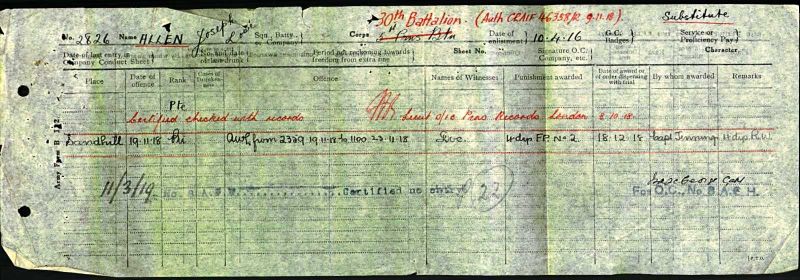 30th Battalion. (Auth CRAIF 46358/2 9.11.18).
Substitute
No. 2826 Name ALLEN Joseph
Sqn., Batty. or Company Corps
Date of enlistment 10-4-16
G.C. Badges
Service or Proficiency Pay
Date of last entry in Company Conduct Sheet
No. and date of last drunk
Period not reckoning towards freedom from extra fine
Sheet No.
Signature O.C. Company, etc.
Character
Place
Date of offence
Rank
Cases of Drunkenness
Offence
Names of Witnesses
Punishment awarded
Date of award or of order dispensing with trial
By whom awarded
Remarks
Pte
Certified checked with records
Lieut o/ic Pens Records London
8.10.18
Sandhill 19.11.18 Pte AWL from 2359 19.11.18 to 1100 23.11.18 4 dys F.P. No 2. 18.12.18 Capt Jenning
Army Form B 122.
11/3/19
Certified no entry
22
For O.C., No
P.T.O.